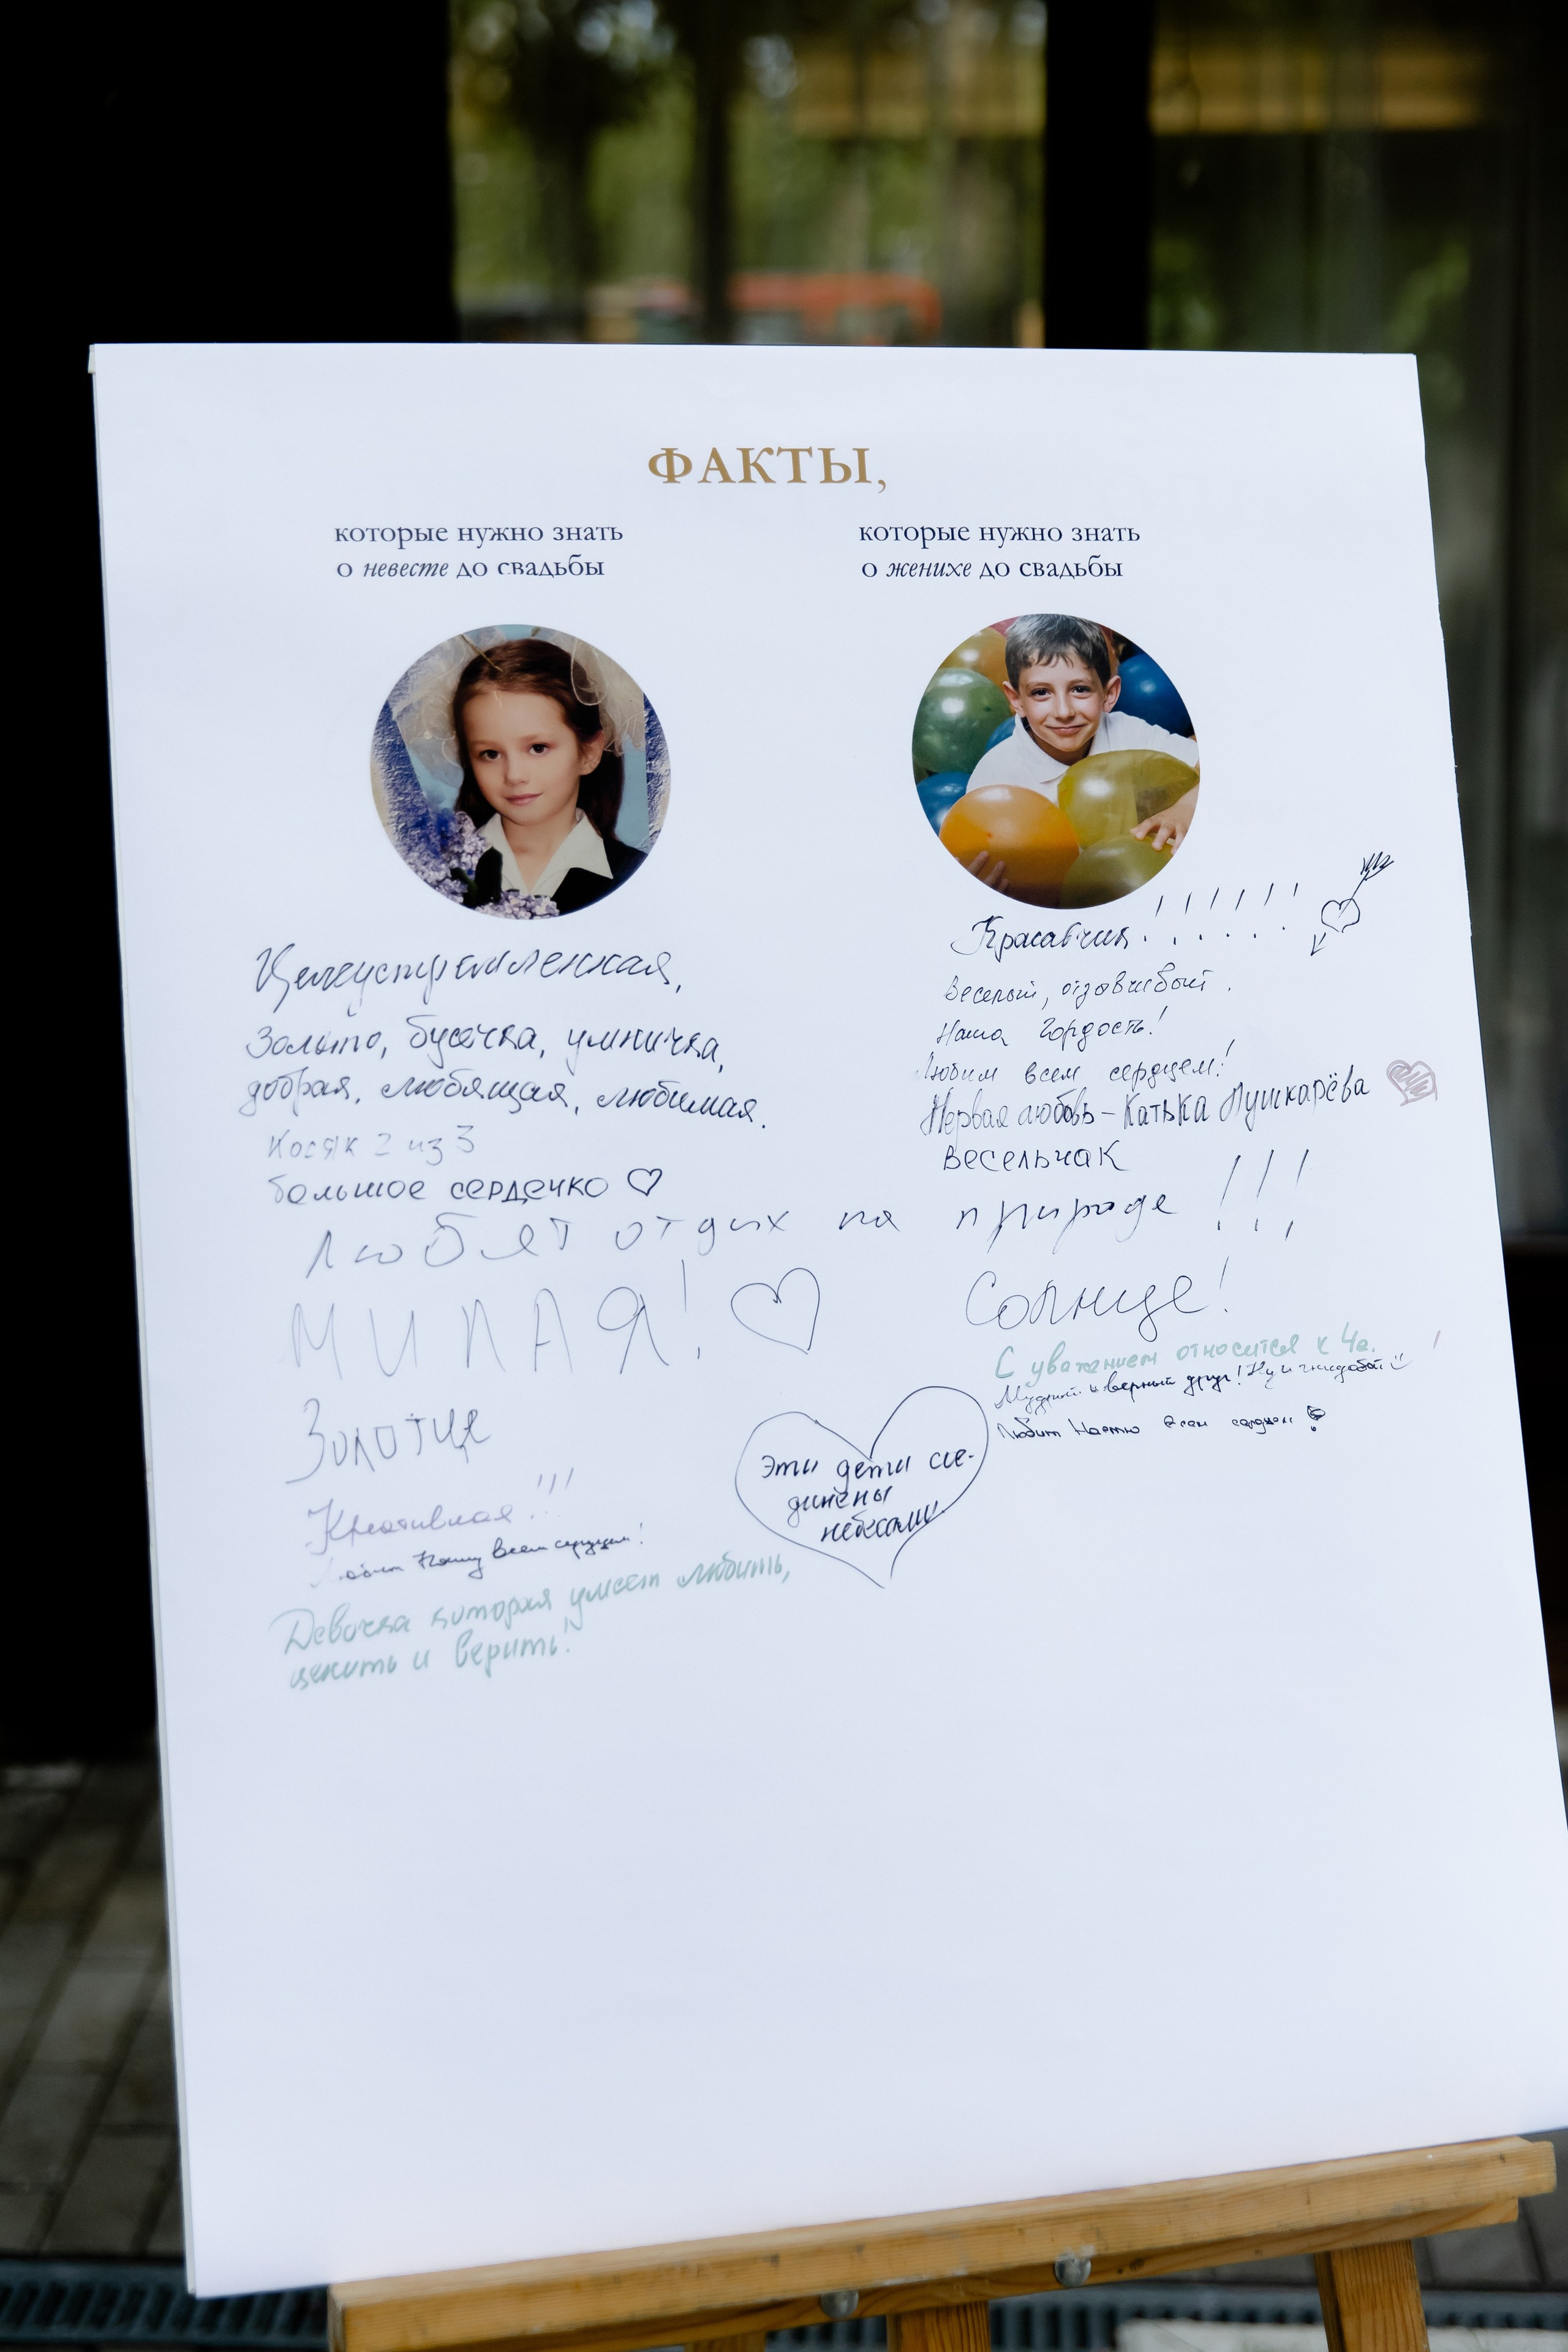 ФАКТЫ,
которые нужно знать
о невесте до свадьбы
Целеустремленная,
Золыто, бусечка, умничка,
добрая, любящая, любимая.
Косяк 2 из 3
большое сердечко
которые нужно знать
о женихе до свадьбы
Красавчик!!!!!!
Веселый, отзывчивый.
Наша Гордость!
Любим всем сердцем!
Первая любовь – Катька Пушкарёва
весельчак
Любят отдых на природе!!!
МИЛАЯ!
Золотце
Креативная!!!
всем сердцем!
Девочка которая умеет любить,
ценить и верить!
Солнце!
С уважением относится к
Мудрый и верный друг! Ну и
Любит Настю всем сердцем
Эти дети сое-
динены
небесами